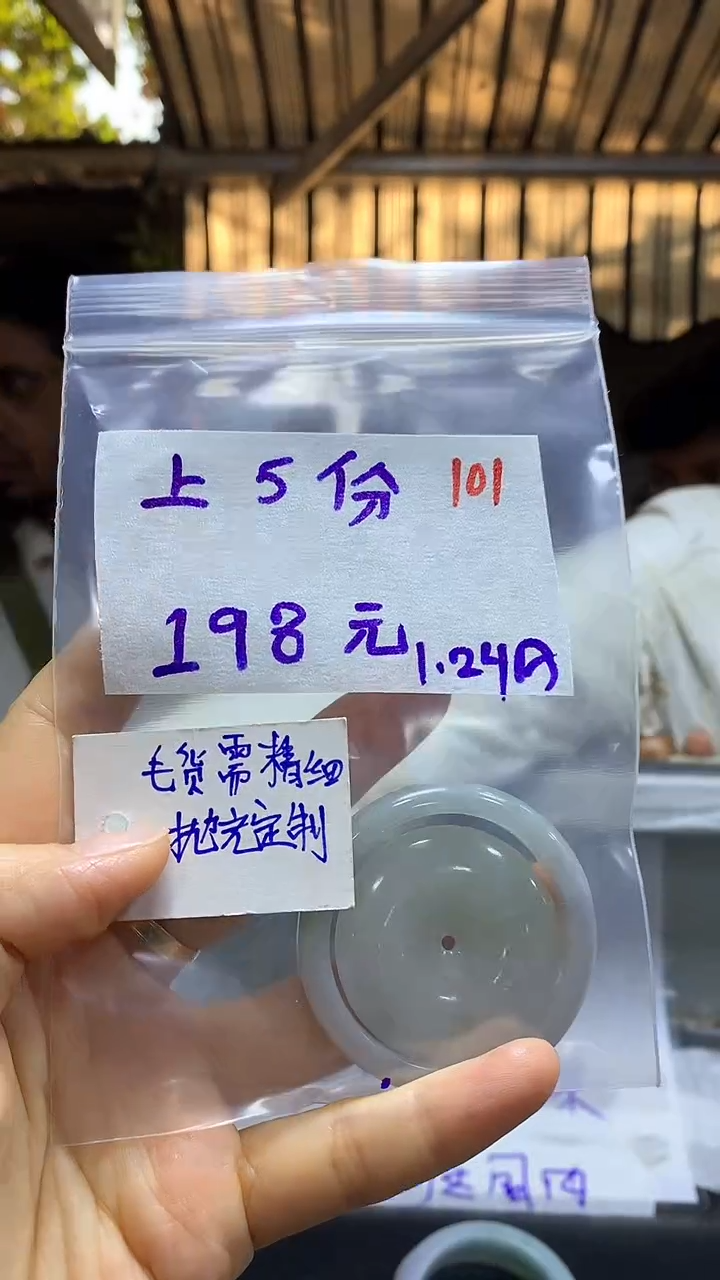 上 5 份 101
198 元 1.24A
毛货需精细
抛充定制